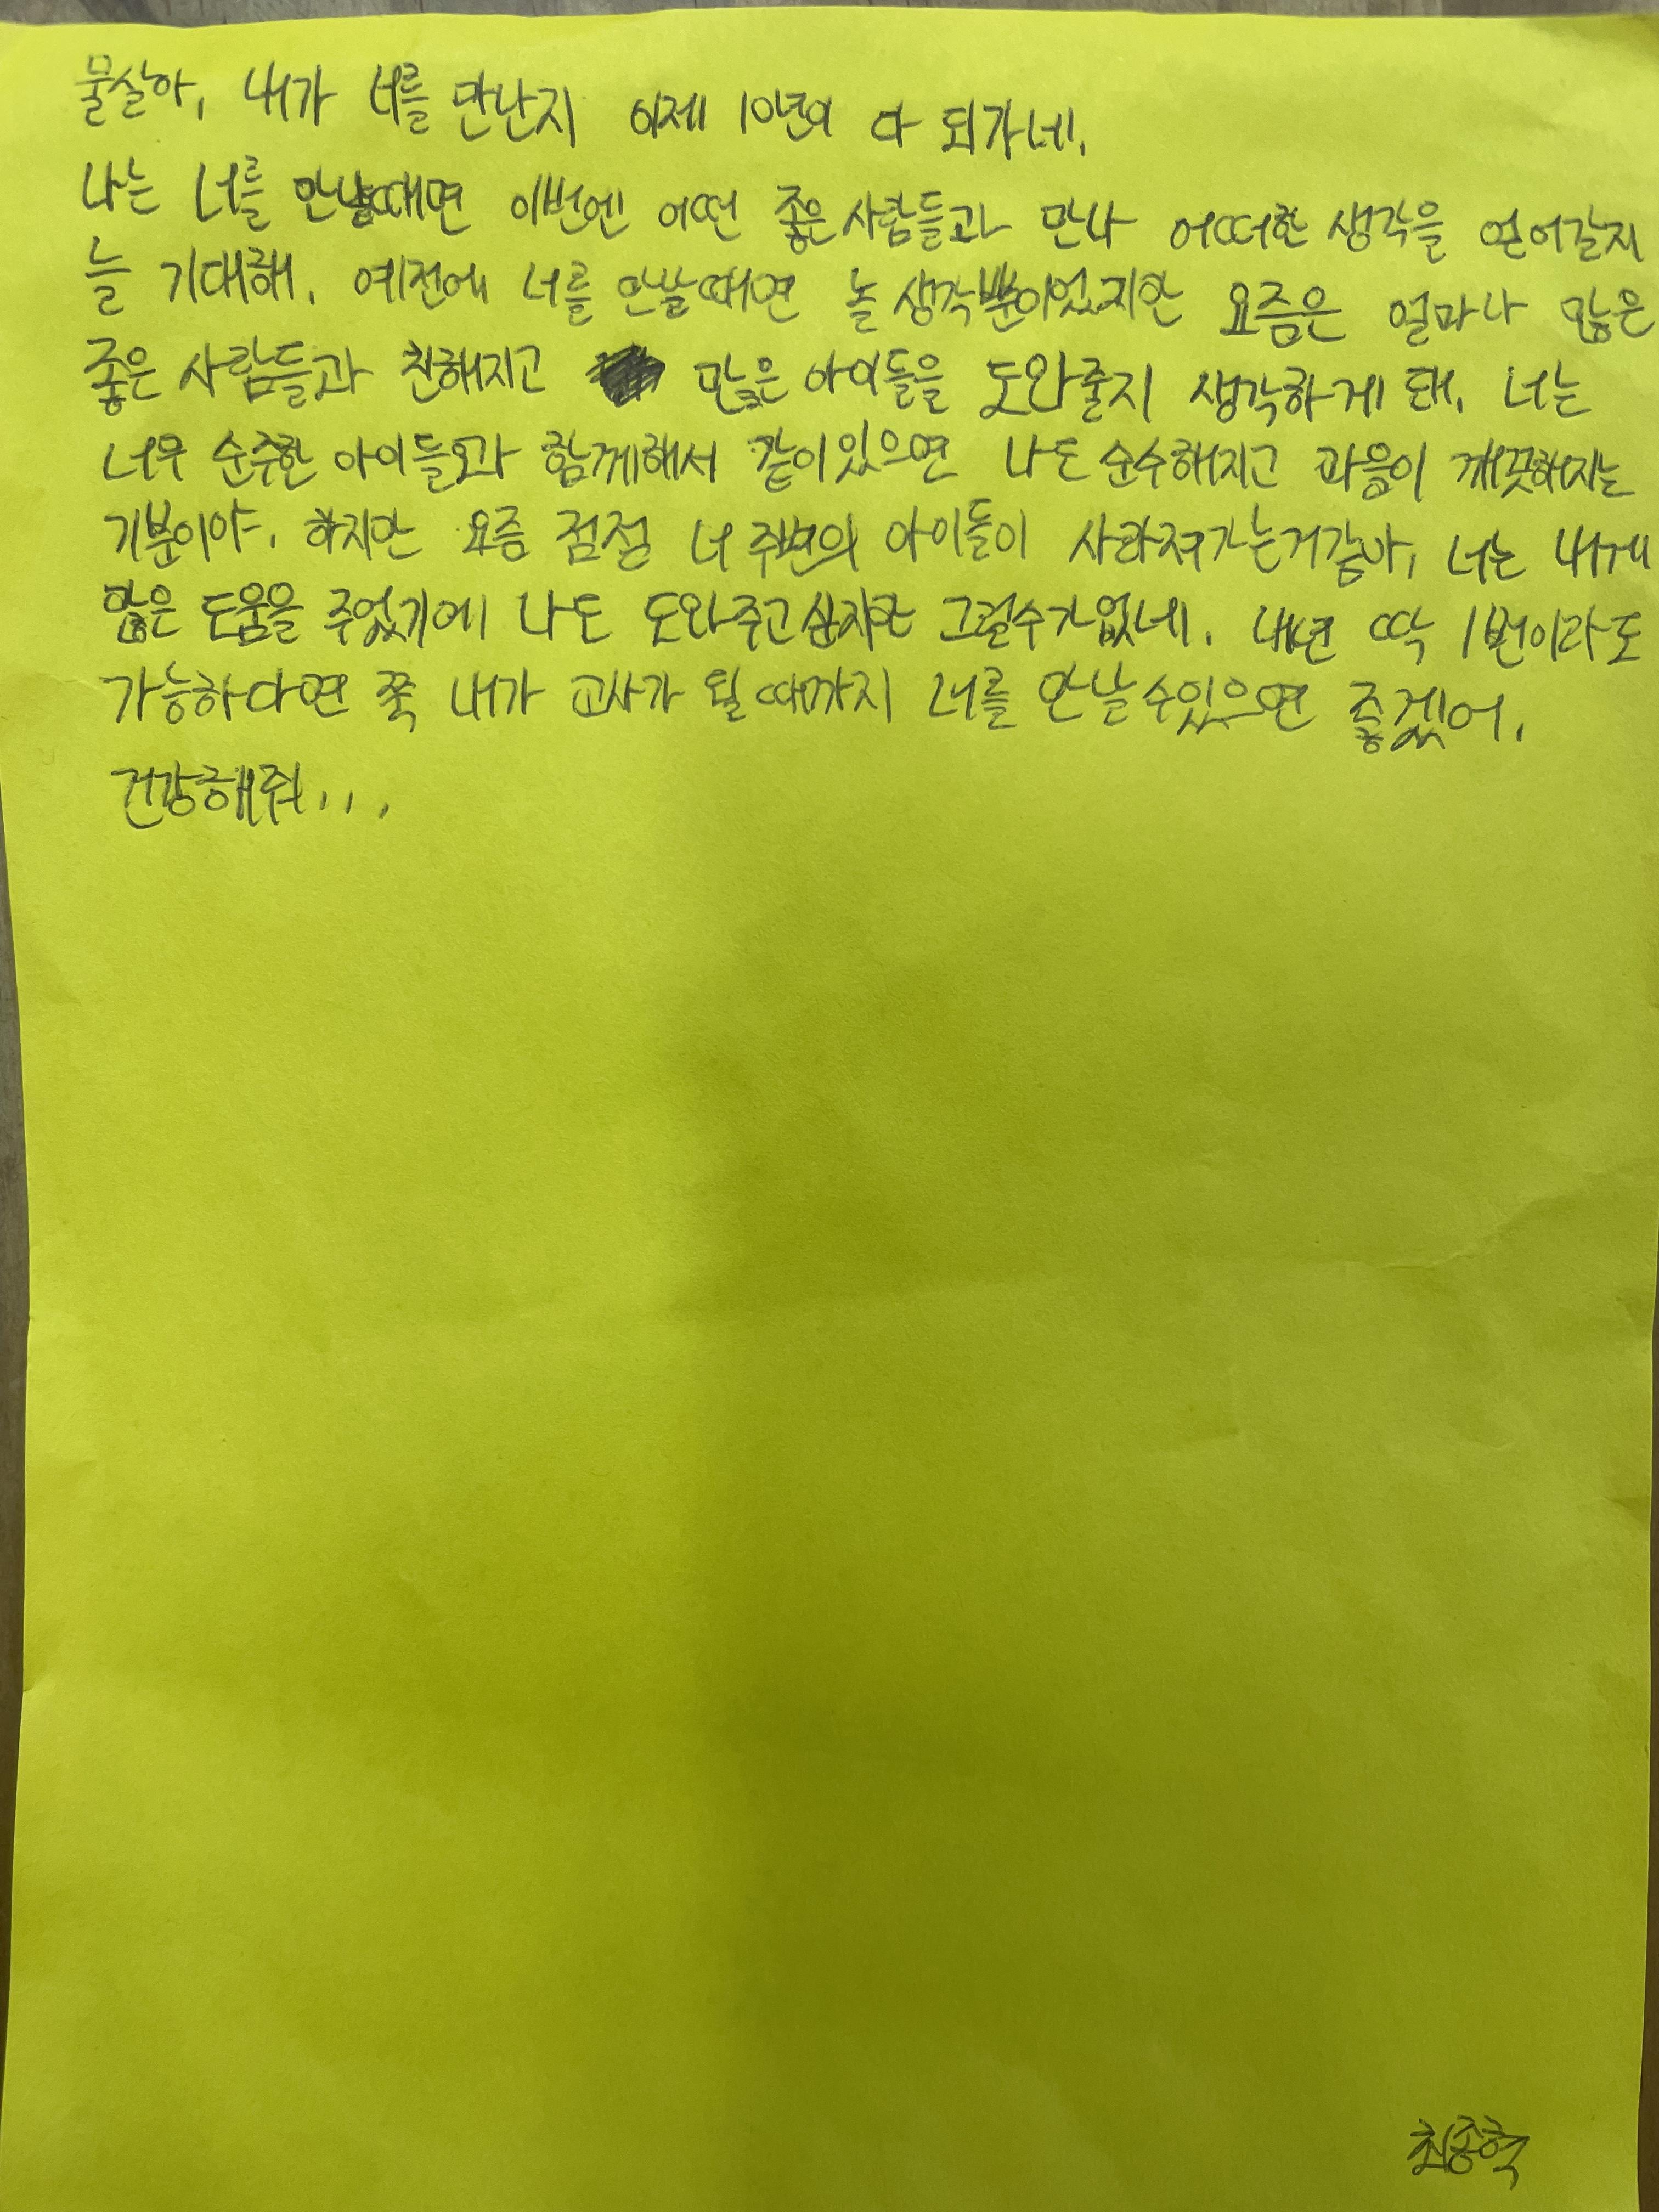 물살아, 내가 너를 만난지 이제 10년이 다 되가네.
나는 너를 만날때면 이번엔 어떤 좋은 사람들과 만나 어떠한 생각을 얻어갈지
늘 기대해. 예전에 너를 만날때면 놀 생각뿐이었지만 요즘은 얼마나 많은
좋은 사람들과 친해지고 많은 아이들을 도와줄지 생각하게 돼. 너는
너무 순수한 아이들과 함께해서 같이있으면 나도 순수해지고 마음이 깨끗해지는
기분이야. 하지만 요즘 점점 너 주변의 아이들이 사라져가는거같아, 너는 내게
많은 도움을 주었기에 나도 도와주고싶지만 그럴수가없네. 내년 딱 1번이라도
가능하다면 쭉 내가 교사가 될 때까지 너를 만날수있으면 좋겠어.
건강해줘...
최종혁